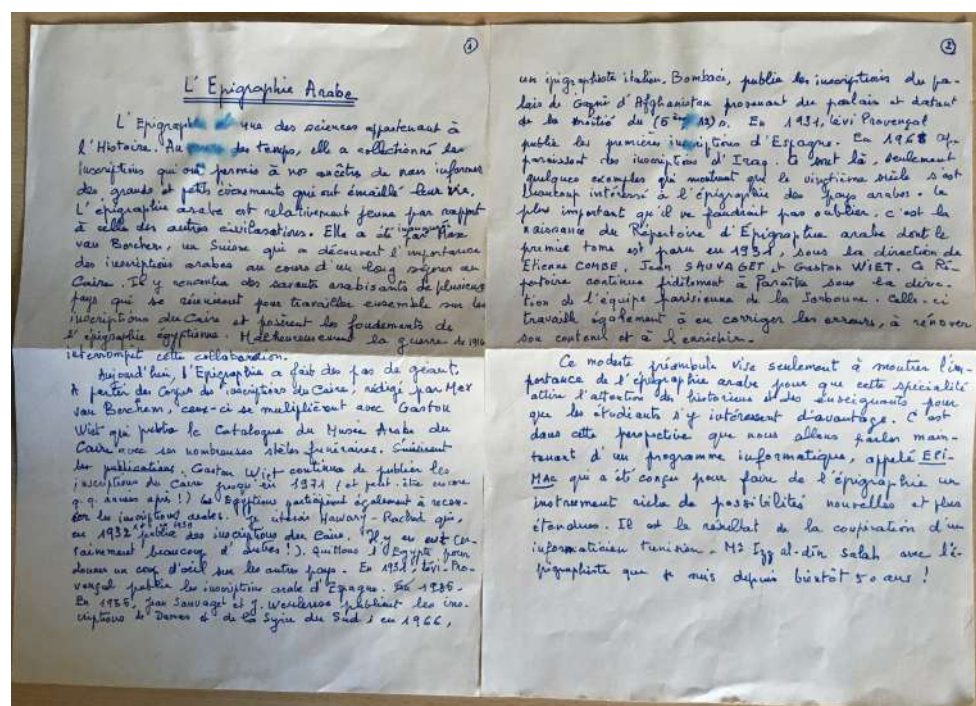 ①
L'Epigraphie Arabe
L'Epigraphie une des sciences appartenant à
l'Histoire. Au des temps, elle a collectionné les
inscriptions qui ont permis à nos ancêtres de nous informer
des grands et petits évènements qui ont émaillé leur vie.
L'épigraphie arabe est relativement jeune par rapport
à celle des autres civilisations. Elle a été inaugurée par Max
van Berchem, un Suisse qui a découvert l'importance
des inscriptions arabes au cours d'un long séjour au
Caire. Il y rencontra des savants arabisants de plusieurs
pays qui se réunirent pour travailler ensemble sur les
inscriptions du Caire et posèrent les fondements de
l'épigraphie égyptienne. Malheureusement la guerre de 1914
interrompit cette collaboration.
Aujourd'hui, l'Epigraphie a fait des pas de géant.
A partir des Corpus des inscriptions du Caire, rédigé par Max
van Berchem, ceux-ci se multiplièrent avec Gaston
Wiet qui publia le Catalogue du Musée Arabe du
Caire avec ses nombreuses stèles funéraires. Suivirent
les publications. Gaston Wiet continua de publier les
inscriptions du Caire jusqu'en 1971 (et peut-être encore
q.q. années après!) Les Egyptiens participent également à recen-
ser les inscriptions arabes. Je citerai Hawary-Rached qui,
en 1932 publia des inscriptions du Caire. Il y en eut cer-
1939
tainement beaucoup d'autres!). Quittons l'Egypte pour
donner un coup d'œil sur les autres pays. En 1931, Lévi-Pro-
vençal publia les inscriptions arabe d'Espagne. 1935.
En 1935, Jean Sauvaget et J. Weulersse publient les ins-
criptions de Damas et de la Syrie du Sud; en 1966,
②
un épigraphiste italien, Bombaci, publia les inscriptions du pa-
lais de Gazni d'Afghanistan provenant du palais et datant
de la moitié du
publia les premières inscriptions d'Espagne. En 1968 ap-
paraissent les inscriptions d'Iraq. Ce sont là, seulement
quelques exemples qui montrent que le vingtième siècle s'est
beaucoup intéressé à l'épigraphie des pays arabes. Le
plus important qu'il ne faudrait pas oublier, c'est la
naissance du Répertoire d'Épigraphie arabe dont le
premier tome est paru en 1931, sous la direction de
Etienne COMBE, Jean SAUVAGET et Gaston WIET. Ce Ré-
pertoire continue fidèlement à Paraître sous la direc-
tion de l'équipe parisienne de la Sorbonne. Celle-ci
travaille également à en corriger les erreurs, à rénover
son contenu et à l'enrichir.
Ce modeste préambule vise seulement à montrer l'im-
portance de l'épigraphie arabe pour que cette spécialité
attire l'attention des historiens et des enseignants pour
que les étudiants s'y intéressent d'avantage. C'est
dans cette perspective que nous allons parler main-
tenant d'un programme informatique, appelé EPI-
MAC qui a été conçu pour faire de l'épigraphie un
instrument riche de possibilités nouvelles et plus
étendues. Il est le résultat de la coopération d'un
informaticien tunisien. Mr Izz al-dîn Salah avec l'é-
pigraphiste que je suis depuis bientôt 50 ans!